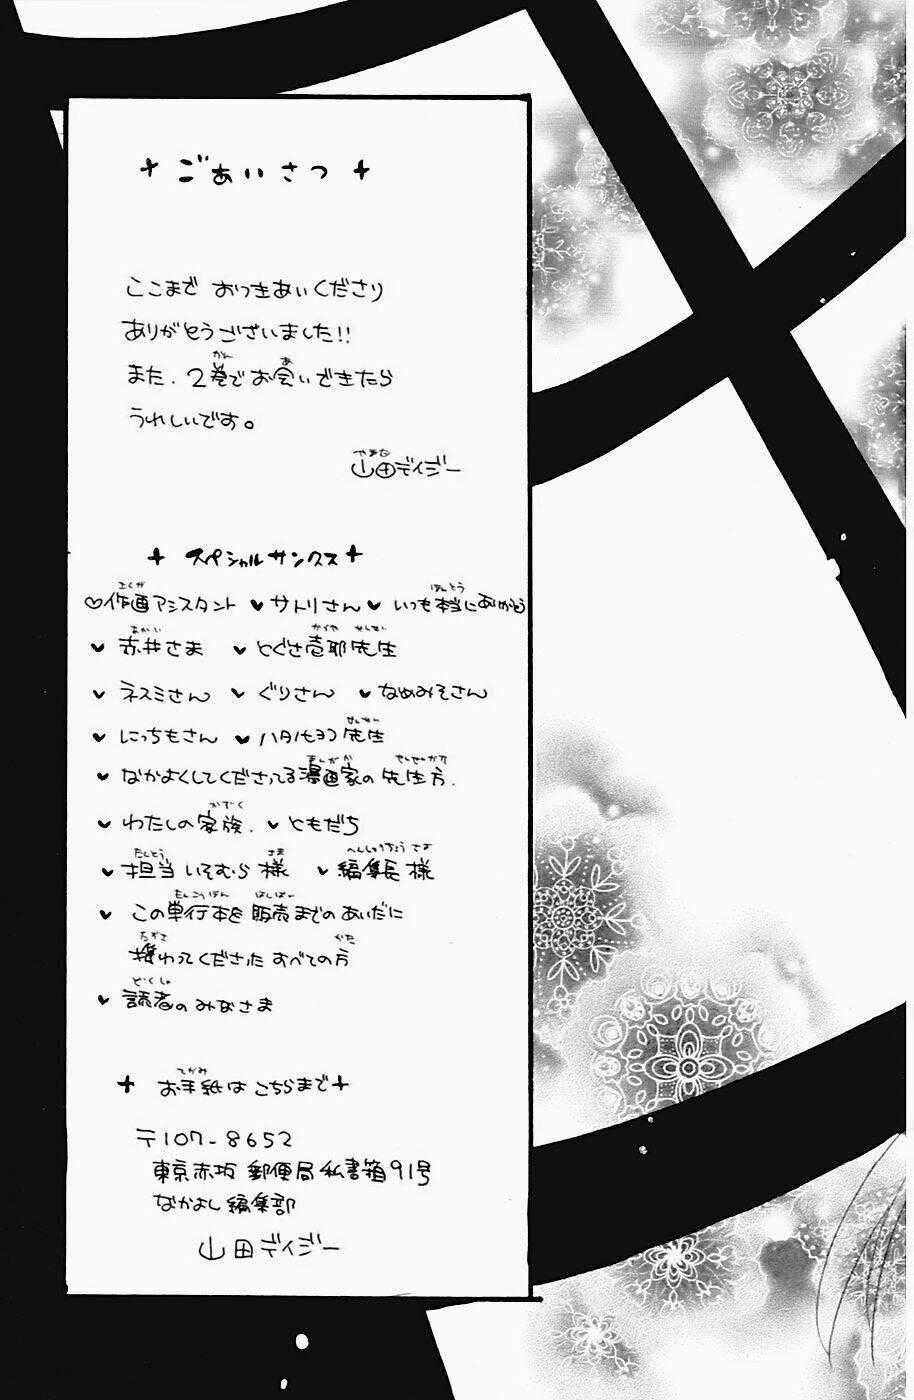 + ごあいさつ +
ここまで おつきあいくださり
ありがとうございました!!
また、2巻でお会いできたら
うれしいです。
山田デイジー
+ スペシャルサンクス +
♡作画アシスタント ♥ サトリさん ♥ いつも本当にありがとう
♥ 赤井さま ♥ とぐさ壱耶先生
♥ ネスミさん ♥ ぐりさん ♥ なめみそさん
♥ にっちもさん ♥ 先生
♥ なかよくしてくださってる漫画家の先生方.
♥ わたしの家族. ♥ ともだち
♥ 担当 いそむら様 ♥ 編集長様
♥ この単行本を販売までのあいだに
携わってくださった すべての方
♥ 読者のみなさま
+ お手紙はこちらまで +
〒107-8652
東京赤坂郵便局私書箱91号
なかよし編集部
山田デイジー